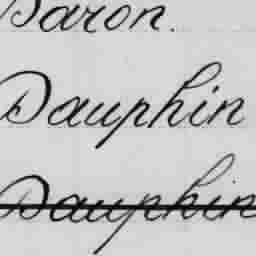 Baron.
Dauphin
Dauphin